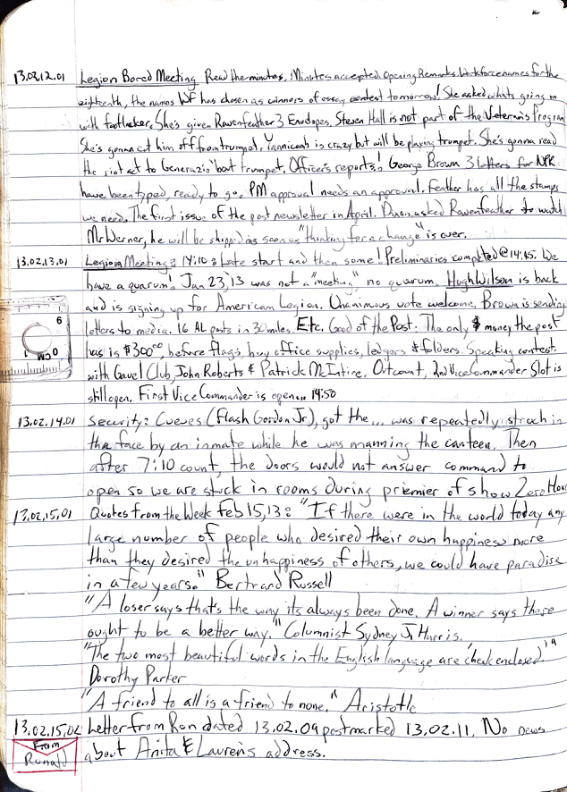 13.02.12.01 Legion Bored Meeting Read the minutes. Minutes accepted Opening Remarks. Workforce names for the
eighteenth, the names WF has chosen as winners of essay contest tomorrow! She asked whats going on
with footlocker. She's given Ravenfeather 3 Envelopes. Steven Hall is not part of the Veteran's Program
She's gonna cut him off from trumpet, is crazy but will be playing trumpet. She's gonna read
the riot act to Generazio 'bout trumpet. Officer's reports: George Brown 3 letters for
have been typed, ready to go. PM approval needs an approval. Feather has all the stamps
we need. The first issue of the post newsletter in April. Dixon asked Ravenfeather to watch
Mr Werner, he will be shipped soon as "thinking for a change" is over.
13.02.13.01 Legion Meeting: 14:10: Late start and then some! Preliminaries completed @ 14:25. We
have a quarum! Jan 23, 13 was not a "meeting," no quarum. Hugh Wilson is back
and is signing up for American Legion. Unanimous vote welcome. Brown is sending
letters to media. 16 AL posts in 30 miles. Etc. Good of the Post: The only $ money the post
has is $300⁰⁰, before flags buy office supplies, ledgers & folders. Speaking contest
with Gavel Club, John Roberts & Patrick McIntire. Out count, 2nd Vice Commander Slot is
still open. First Vice Commander is open... 14:50
6
1
CM
0
13.02.14.01 Security: Cueves (Flash Gordon Jr), got the... was repeatedly struck in
the face by an inmate while he was manning the canteen. Then
after 7:10 count, the doors would not answer command to
open so we are stuck in rooms during priemier of show Zero Hour
13.02.15.01 Quotes from the Week Feb 15, 13: "If there were in the world today any
large number of people who desired their own happiness more
than they desired the unhappiness of others, we could have paradise
in a few years." Bertrand Russell
"A loser says thats the way its always been done. A winner says there
ought to be a better way." Columnist Sydney J Harris.
"The two most beautiful words in the English language are 'check enclosed'"
Dorothy Parker
"A friend to all is a friend to none." Aristotle
13.02.15.02 Letter from Ron dated 13.02.09 postmarked 13.02.11. No news
From
Ronald
about Anita & Lauren's address.